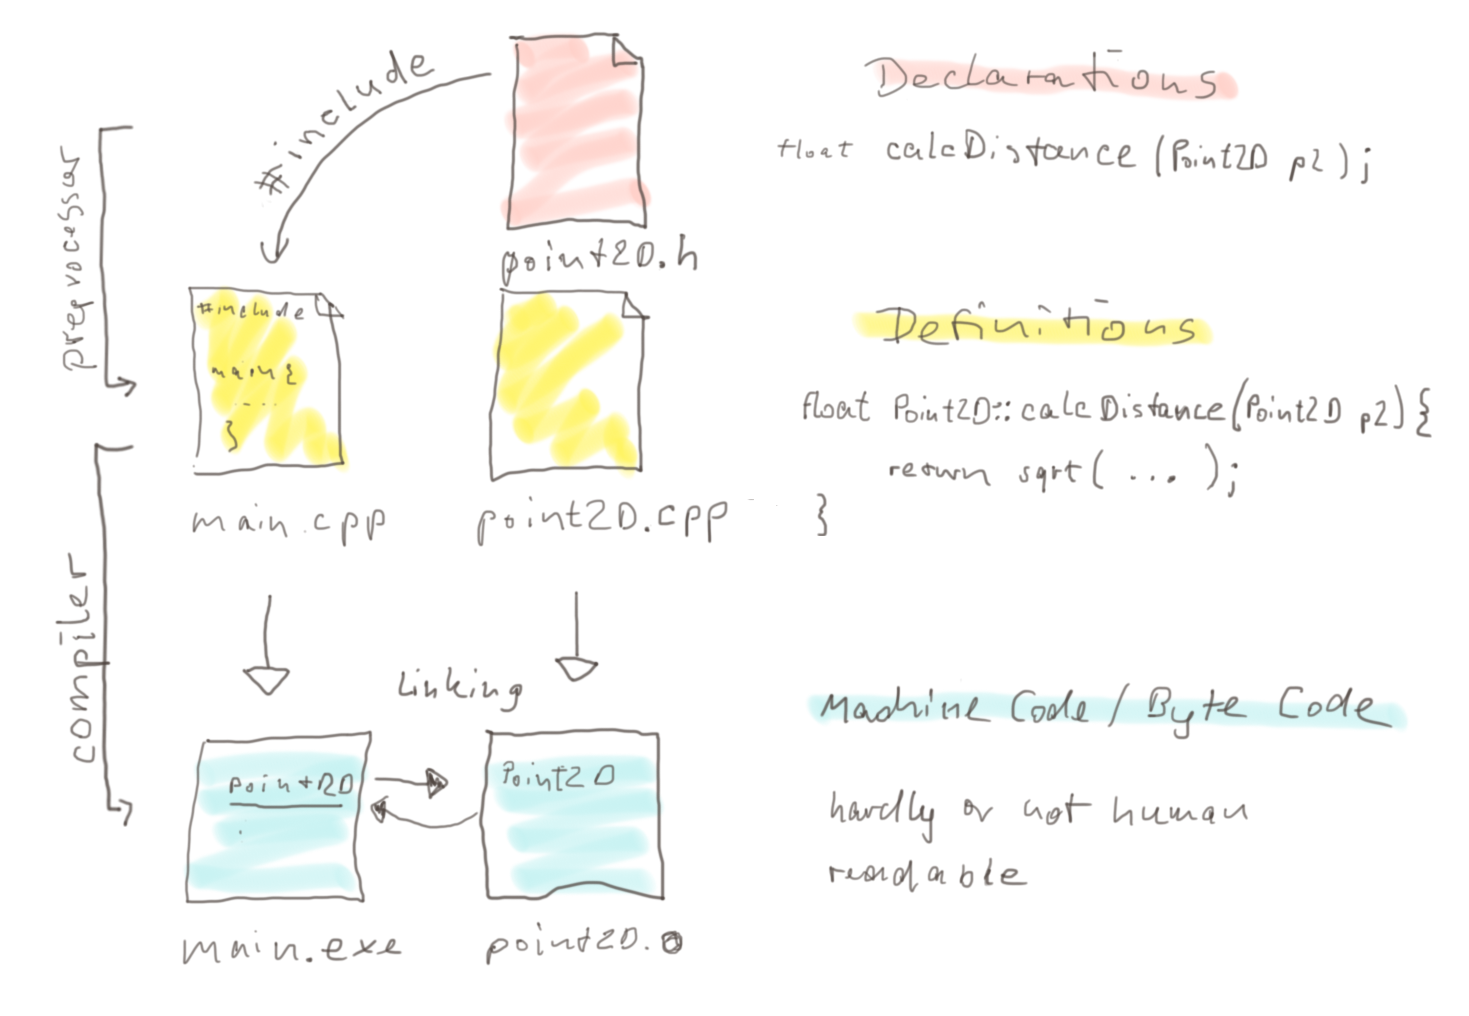 #include
Declarations
float calcDistance (Point2D p2);
preprocessor
point2D.h
#include
main{
....
}
Definitions
float Point2D::calcDistance(Point2D p2){
return sqrt( ... );
}
main.cpp
point2D.cpp
compiler
Linking
Machine Code / Byte Code
Point2D
Point2D
hardly or not human
readable
main.exe
point2D.o